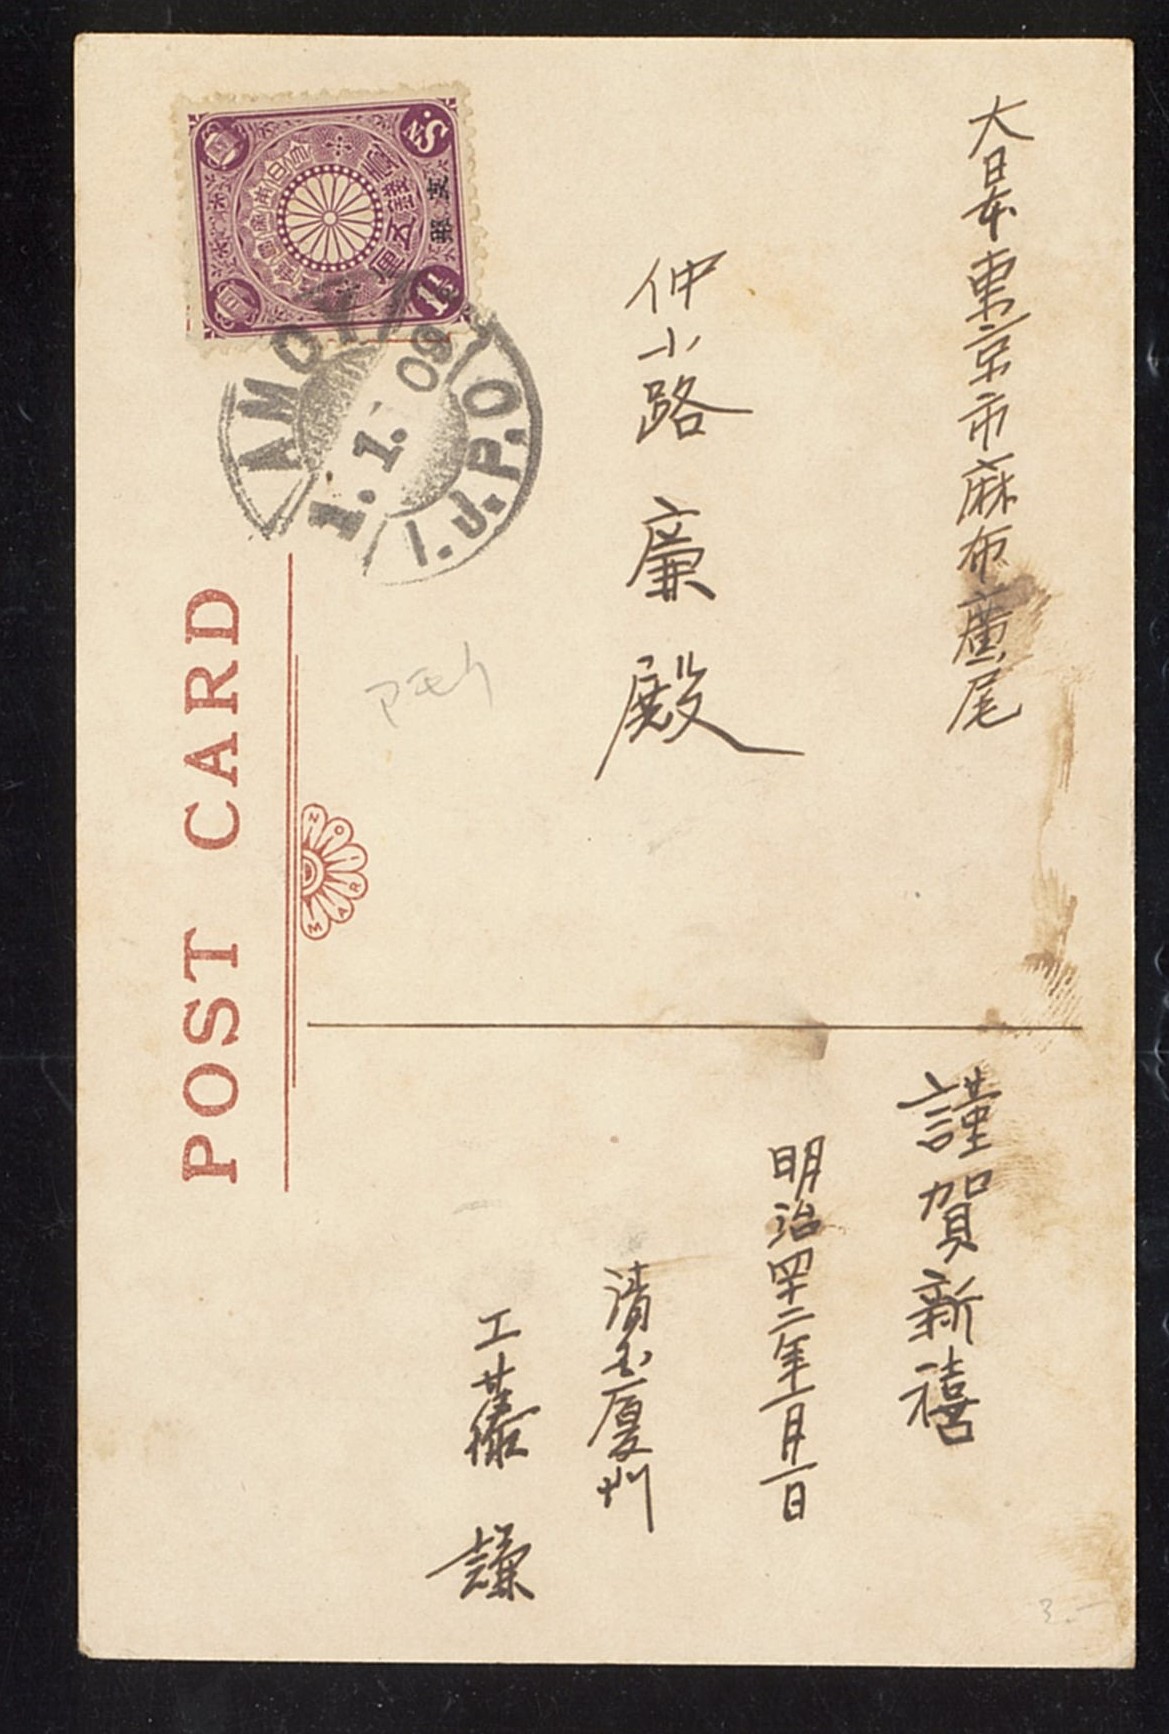 大日本東京市麻布廣尾
仲小路廉殿
謹賀新禧
明治四十二年一月一日
清国厦門
工藤謙
POST CARD
MARI
NO
AMOY
1.1.09
I.J.P.O.
支那
1½
Sn.
アモイ
3.-